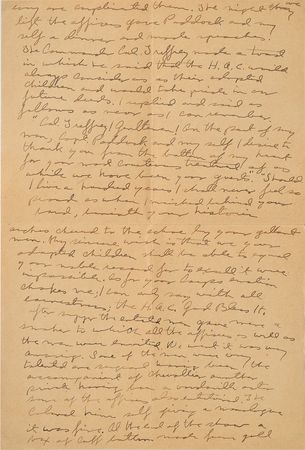 left the officers gave Paddock and my
self a dinner and made speeches.
The Commander Col. Treffrey made a toast
in which he said that the H.A.C. would
always consider us as their adopted
children and would take pride in our
future deeds. I replied and said as
follows as near as I can remember.
"Col Treffrey, Gentlemen, On the part of my
men, Capt Paddock and my self I desire to
thank you from the bottom of my heart
for your most courteous treatment of us
while we have been your guests. Should
I live a hundred years I shall never feel so
proud as when I marched behind your
band, beneath your historic
arches cheered to the echo by your gallant
men. My sincere wish is that we your
adopted children shall be able to equal
your noble record for to excell it were
impossible. As for your Corps emotion
chokes me; I can only say with all
earnestness; the H.A.C. God Bless It.
after supper the men gave a
smoker to which all the officers as well as
the men were invited. It was very
amusing. Some of the men were very
talented
some of the officers also entertained. The
Colonel him self giving a monologue
it was fine. At the end of the show a
box of cuff buttons made from gold